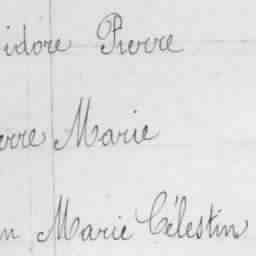 idore Pierre
erre Marie
n Marie Célestin